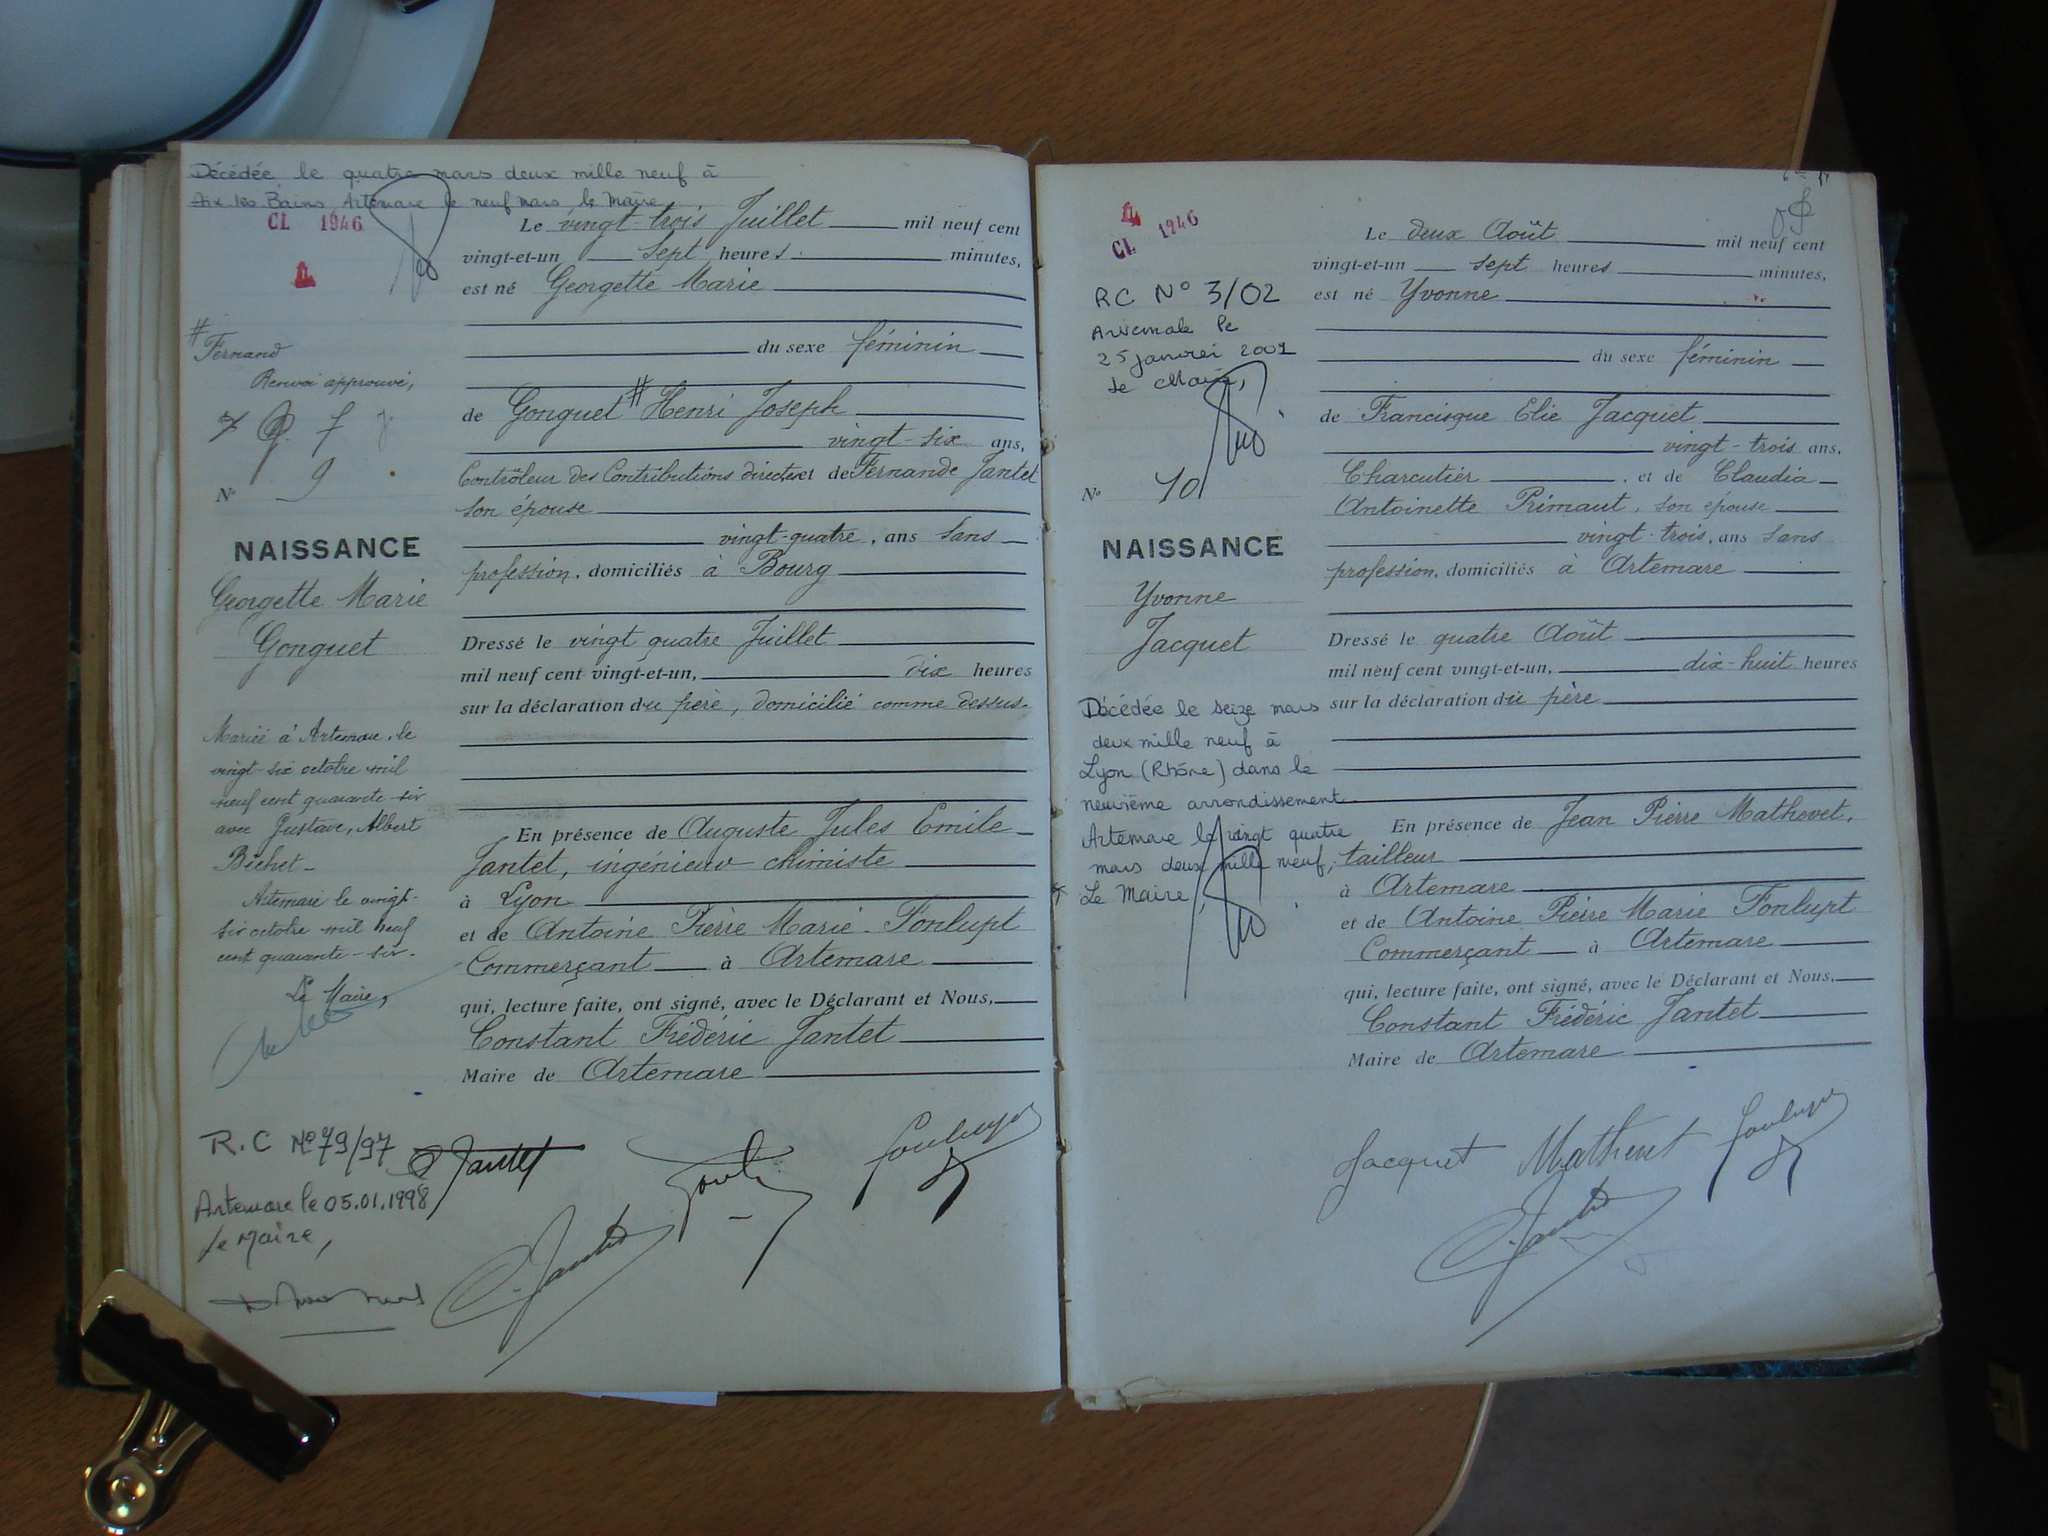 Décédée le quatre mars deux mille neuf à
Aix les Bains, Artemare le neuf mars, le Maire
CL 1946
# Fernand
Renvoi approuvé,
N° 9
NAISSANCE
Georgette Marie
Gonguet
Mariée à Artemare, le
vingt-six octobre mil
neuf cent quarante-six
avec Gustave, Albert
Béchet -
Artemare le vingt-
six octobre mil neuf
cent quarante-six.
Le Maire,
R.C N° 79/97
Artemare le 05.01.1998
Le Maire,
Le vingt-trois Juillet mil neuf cent
vingt-et-un sept heures minutes,
est né Georgette Marie
du sexe féminin
de Gonguet # Henri Joseph
vingt-six ans,
Contrôleur des Contributions directes et de Fernande Jantet
son épouse
vingt-quatre, ans sans
profession, domiciliés à Bourg
Dressé le vingt quatre Juillet
mil neuf cent vingt-et-un, dix heures
sur la déclaration du père, domicilié comme dessus.
En présence de Auguste Jules Emile
Jantet, ingénieur chimiste
à Lyon
et de Antoine Pierre Marie Fonlupt
Commerçant à Artemare
qui, lecture faite, ont signé, avec le Déclarant et Nous,
Constant Frédéric Jantet
Maire de Artemare
Jantet
Fonlupt
C. Jantet
CL 1946
RC N° 3/02
Artemare le
25 janvier 2002
Le Maire,
N° 10
NAISSANCE
Yvonne
Jacquet
Décédée le seize mars
deux mille neuf à
Lyon (Rhône) dans le
neuvième arrondissement.
Artemare le vingt quatre
mars deux mille neuf,
Le Maire,
Le deux Août mil neuf cent
vingt-et-un sept heures minutes,
est né Yvonne
du sexe féminin
de Francisque Elie Jacquet
vingt-trois ans,
Charcutier, et de Claudia
Antoinette Primaut, son épouse
vingt-trois, ans sans
profession, domiciliés à Artemare
Dressé le quatre Août
mil neuf cent vingt-et-un, dix-huit heures
sur la déclaration du père
En présence de Jean Pierre Mathevet,
tailleur
à Artemare
et de Antoine Pierre Marie Fonlupt
Commerçant à Artemare
qui, lecture faite, ont signé, avec le Déclarant et Nous,
Constant Frédéric Jantet
Maire de Artemare
Jacquet Mathevet Fonlupt
C. Jantet